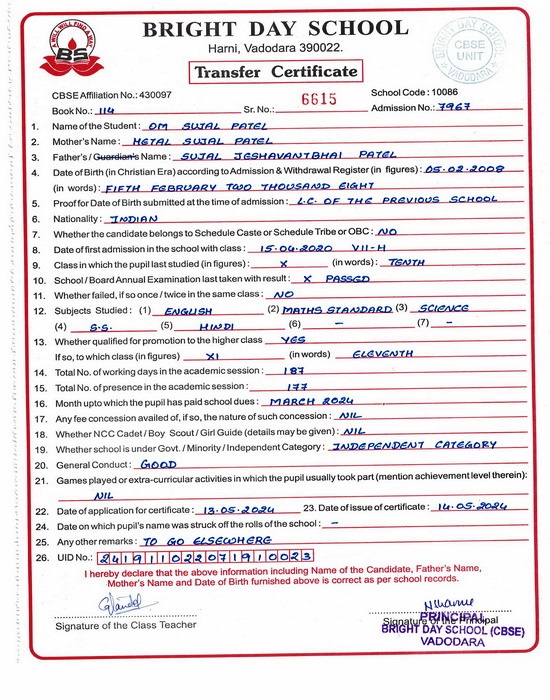 A WILL WILL FIND A WAY
BS
BRIGHT DAY SCHOOL
Harni, Vadodara 390022.
BRIGHT DAY SCHOOL
CBSE
UNIT
VADODARA
Transfer Certificate
CBSE Affiliation No.: 430097 School Code : 10086
Book No.: 114 Sr. No.: 6615 Admission No.: 7967
1. Name of the Student : OM SUJAL PATEL
2. Mother's Name : HETAL SUJAL PATEL
3. Father's / Guardian's Name : SUJAL JESHAVANTBHAI PATEL
4. Date of Birth (in Christian Era) according to Admission & Withdrawal Register (in figures) : 05-02-2008
(in words) : FIFTH FEBRUARY TWO THOUSAND EIGHT
5. Proof for Date of Birth submitted at the time of admission : L.C. OF THE PREVIOUS SCHOOL
6. Nationality : INDIAN
7. Whether the candidate belongs to Schedule Caste or Schedule Tribe or OBC : NO
8. Date of first admission in the school with class : 15-04-2020 VII-H
9. Class in which the pupil last studied (in figures) : X (in words) : TENTH
10. School / Board Annual Examination last taken with result : X PASSED
11. Whether failed, if so once / twice in the same class : NO
12. Subjects Studied : (1) ENGLISH (2) MATHS STANDARD (3) SCIENCE
(4) S.S. (5) HINDI (6) - (7) -
13. Whether qualified for promotion to the higher class YES
If so, to which class (in figures) XI (in words) ELEVENTH
14. Total No. of working days in the academic session : 187
15. Total No. of presence in the academic session : 177
16. Month upto which the pupil has paid school dues : MARCH 2024
17. Any fee concession availed of, if so, the nature of such concession : NIL
18. Whether NCC Cadet / Boy Scout / Girl Guide (details may be given) : NIL
19. Whether school is under Govt. / Minority / Independent Category : INDEPENDENT CATEGORY
20. General Conduct : GOOD
21. Games played or extra-curricular activities in which the pupil usually took part (mention achievement level therein):
NIL
22. Date of application for certificate : 13-05-2024 23. Date of issue of certificate : 14-05-2024
24. Date on which pupil's name was struck off the rolls of the school : -
25. Any other remarks : TO GO ELSEWHERE
26. UID No.: 241911022071910023
I hereby declare that the above information including Name of the Candidate, Father's Name,
Mother's Name and Date of Birth furnished above is correct as per school records.
Signature of the Class Teacher Signature of the Principal
PRINCIPAL
BRIGHT DAY SCHOOL (CBSE)
VADODARA